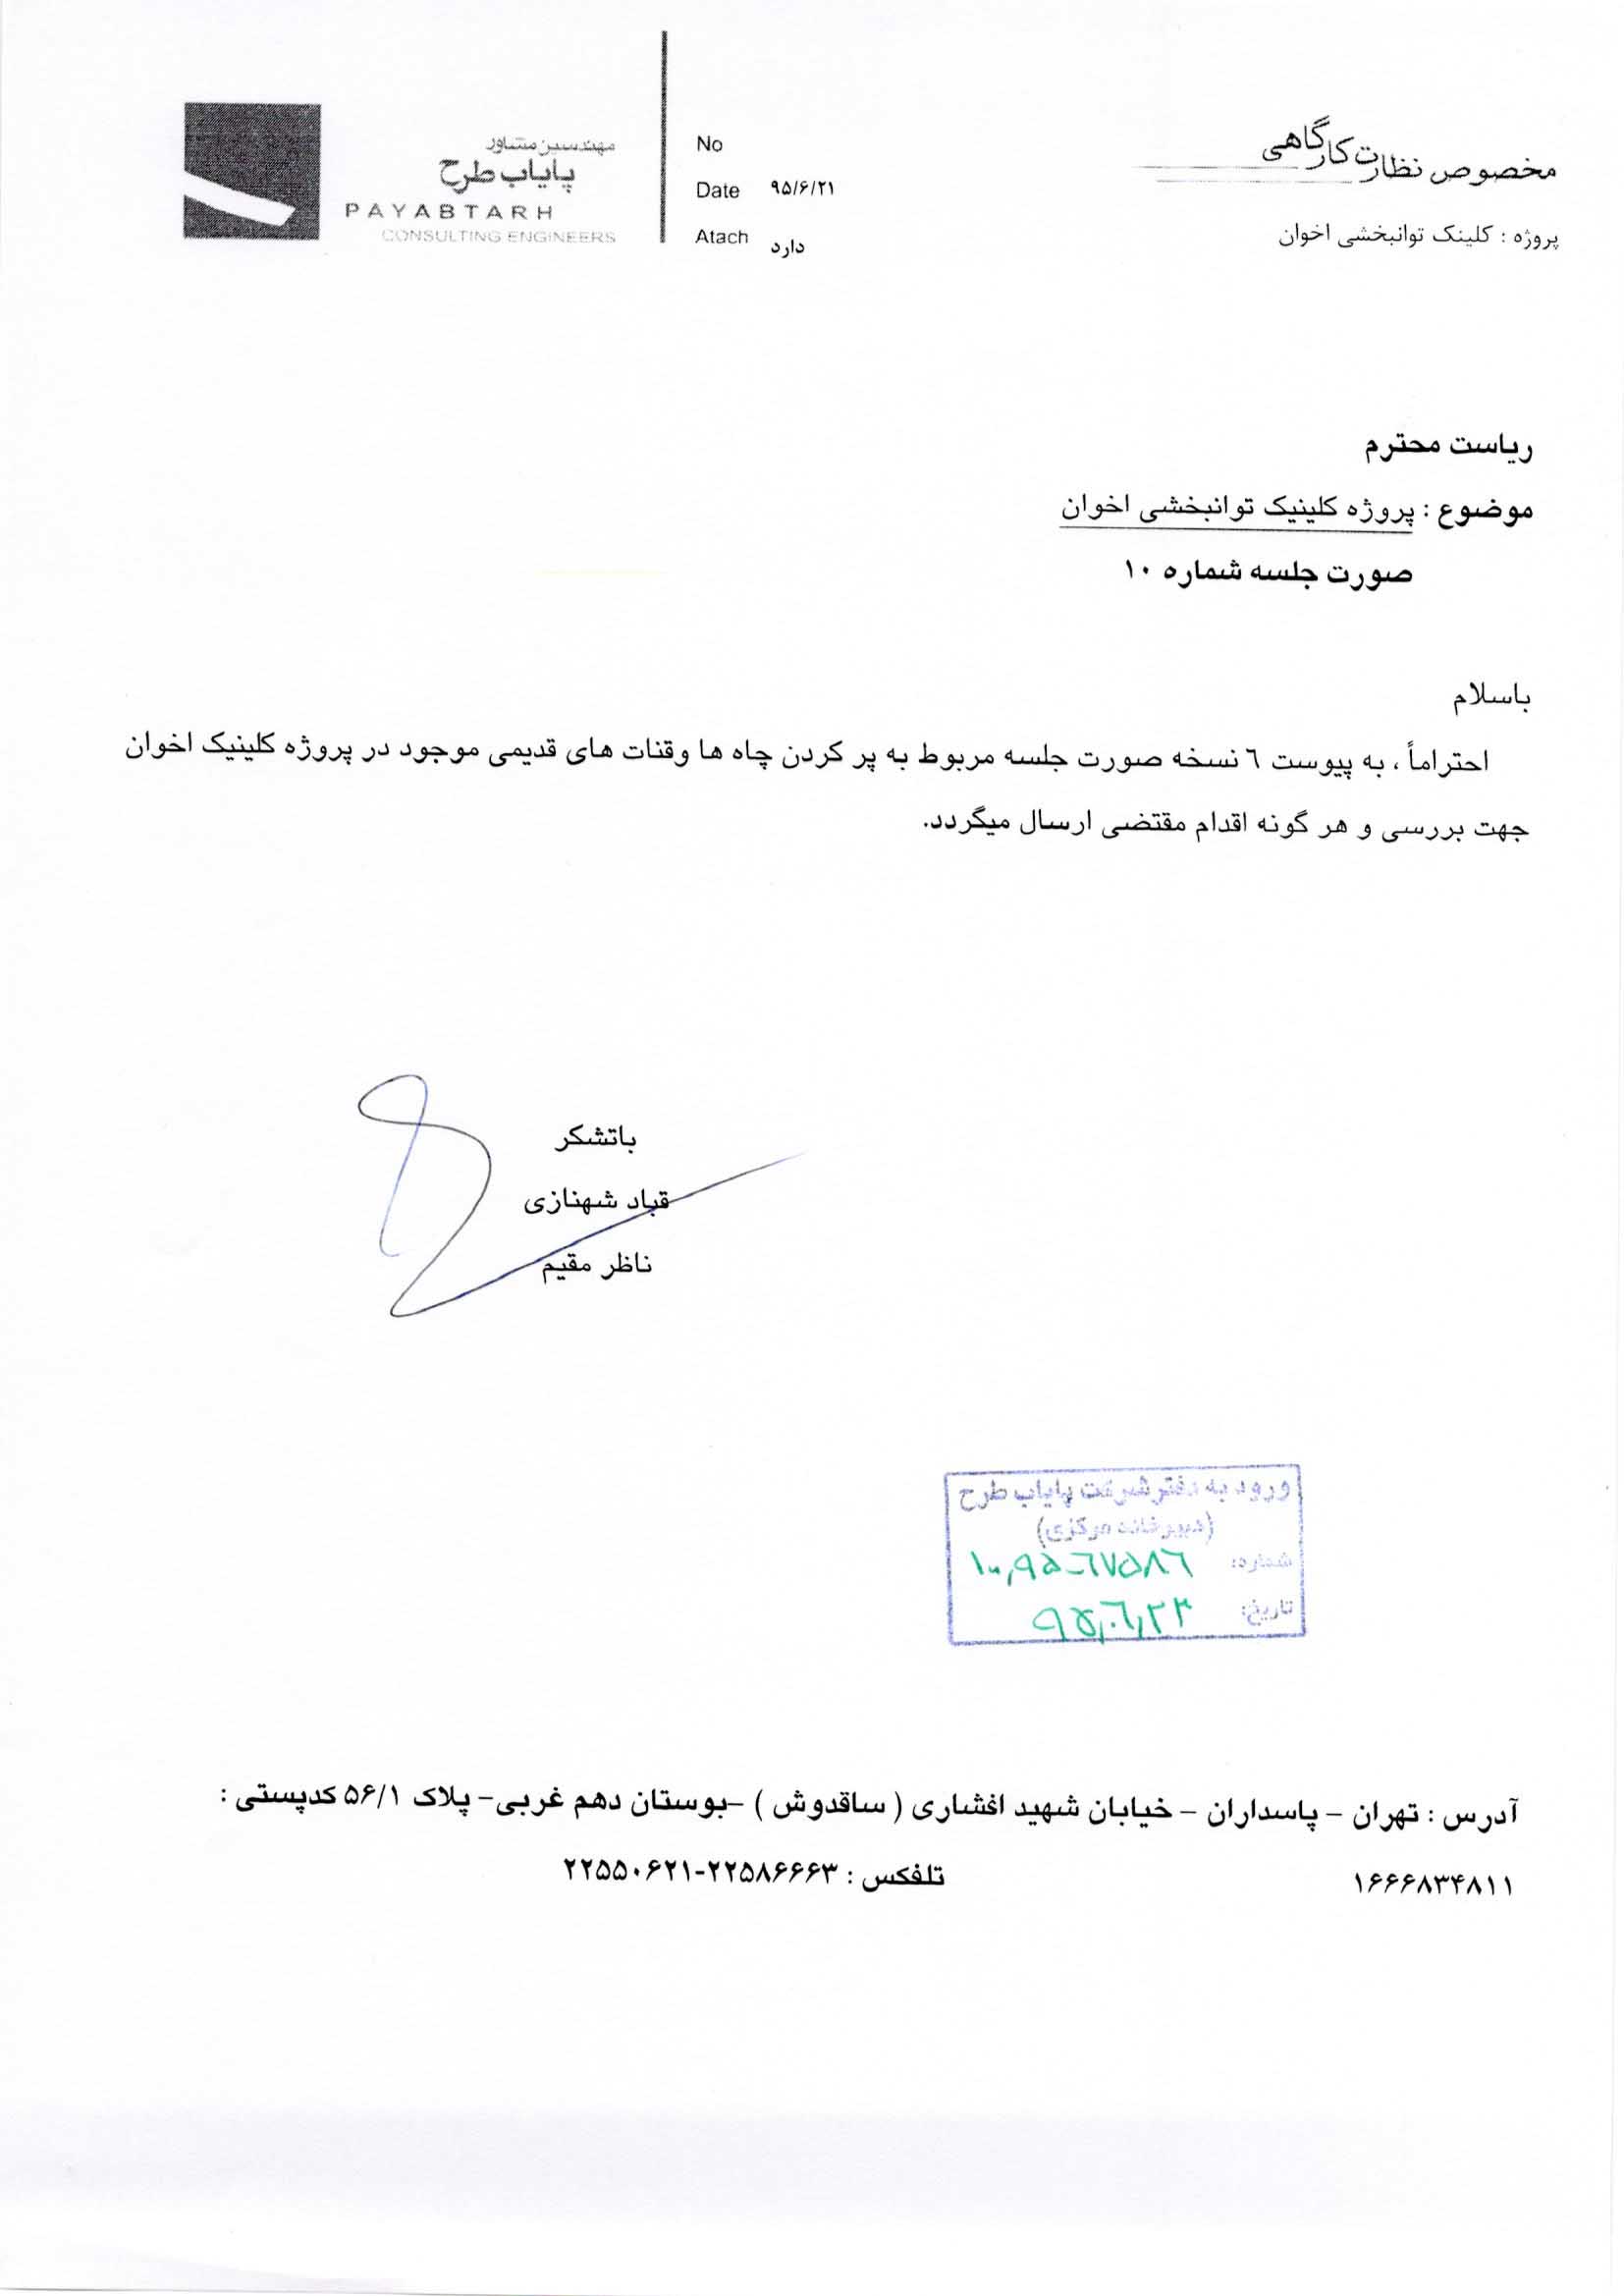 مخصوص نظارت کارگاهی
پروژه : کلینک توانبخشی اخوان
No
Date ۹۵/۶/۲۱
Atach دارد
مهندسین مشاور
پایاب طرح
PAYABTARH
CONSULTING ENGINEERS
ریاست محترم
موضوع : پروژه کلینیک توانبخشی اخوان
صورت جلسه شماره ۱۰
باسلام
احتراماً ، به پیوست ٦ نسخه صورت جلسه مربوط به پر کردن چاه ها وقنات های قدیمی موجود در پروژه کلینیک اخوان
جهت بررسی و هر گونه اقدام مقتضی ارسال میگردد.
باتشکر
قباد شهنازی
ناظر مقیم
ورود به دفتر شرکت پایاب طرح
(دبیرخانه مرکزی)
شماره:
تاریخ: ۹۵,۰٦,۲۳
آدرس : تهران – پاسداران – خیابان شهید افشاری ( ساقدوش ) –بوستان دهم غربی– پلاک ۵۶/۱ کدپستی :
۱۶۶۶۸۳۴۸۱۱ تلفکس : ۲۲۵۸۶۶۶۳-۲۲۵۵۰۶۲۱